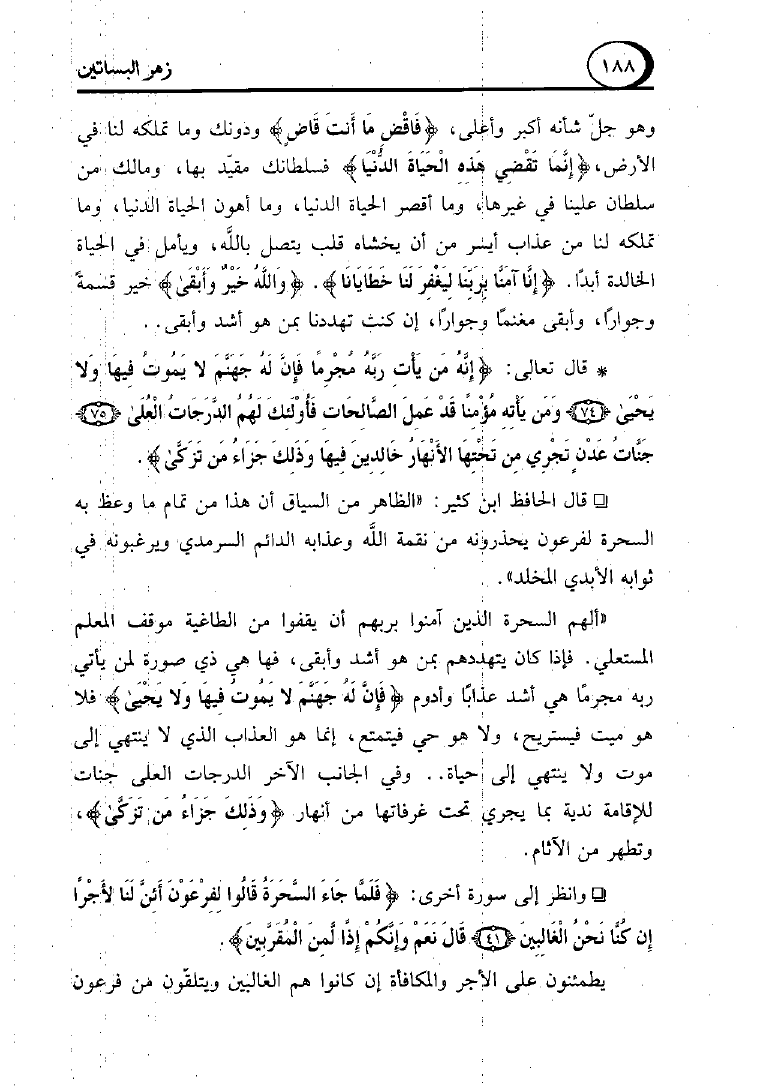 ١٨٨
زهر البساتين
وهو جلّ شأنه أكبر وأعلى، ﴿فَاقْضِ مَا أَنتَ قَاضٍ﴾ ودونك وما تملكه لنا في
الأرض، ﴿إِنَّمَا تَقْضِي هَذِهِ الْحَيَاةَ الدُّنْيَا﴾ فسلطانك مقيّد بها، ومالك من
سلطان علينا في غيرها، وما أقصر الحياة الدنيا، وما أهون الحياة الدنيا، وما
تملكه لنا من عذاب أيسر من أن يخشاه قلب يتصل باللَّه، ويأمل في الحياة
الخالدة أبدًا. ﴿إِنَّا آمَنَّا بِرَبِّنَا لِيَغْفِرَ لَنَا خَطَايَانَا﴾. ﴿وَاللَّهُ خَيْرٌ وَأَبْقَىٰ﴾ خير قسمةً
وجوارًا، وأبقى مغنمًا وجوارًا، إن كنت تهددنا بمن هو أشد وأبقى..
* قال تعالى: ﴿إِنَّهُ مَن يَأْتِ رَبَّهُ مُجْرِمًا فَإِنَّ لَهُ جَهَنَّمَ لا يَمُوتُ فِيهَا وَلا
يَحْيَىٰ ﴿٧٤﴾ وَمَن يَأْتِهِ مُؤْمِنًا قَدْ عَمِلَ الصَّالِحَاتِ فَأُوْلَئِكَ لَهُمُ الدَّرَجَاتُ الْعُلَىٰ ﴿٧٥﴾
جَنَّاتُ عَدْنٍ تَجْرِي مِن تَحْتِهَا الأَنْهَارُ خَالِدِينَ فِيهَا وَذَلِكَ جَزَاءُ مَن تَزَكَّىٰ﴾.
❏ قال الحافظ ابن كثير: «الظاهر من السياق أن هذا من تمام ما وعظ به
السحرة لفرعون يحذرونه من نقمة اللَّه وعذابه الدائم السرمدي ويرغبونه في
ثوابه الأبدي المخلد».
«ألهم السحرة الذين آمنوا بربهم أن يقفوا من الطاغية موقف المعلم
المستعلي. فإذا كان يتهددهم بمن هو أشد وأبقى، فها هي ذي صورة لمن يأتي
ربه مجرمًا هي أشد عذابًا وأدوم ﴿فَإِنَّ لَهُ جَهَنَّمَ لا يَمُوتُ فِيهَا وَلا يَحْيَىٰ﴾ فلا
هو ميت فيستريح، ولا هو حي فيتمتع، إنما هو العذاب الذي لا ينتهي إلى
موت ولا ينتهي إلى حياة.. وفي الجانب الآخر الدرجات العلى جنات
للإقامة ندية بما يجري تحت غرفاتها من أنهار ﴿وَذَلِكَ جَزَاءُ مَن تَزَكَّىٰ﴾،
وتطهر من الآثام.
❏ وانظر إلى سورة أخرى: ﴿فَلَمَّا جَاءَ السَّحَرَةُ قَالُوا لِفِرْعَوْنَ أَئِنَّ لَنَا لأَجْرًا
إِن كُنَّا نَحْنُ الْغَالِبِينَ ﴿٤١﴾ قَالَ نَعَمْ وَإِنَّكُمْ إِذًا لَّمِنَ الْمُقَرَّبِينَ﴾.
يطمئنون على الأجر والمكافأة إن كانوا هم الغالبين ويتلقّون من فرعون